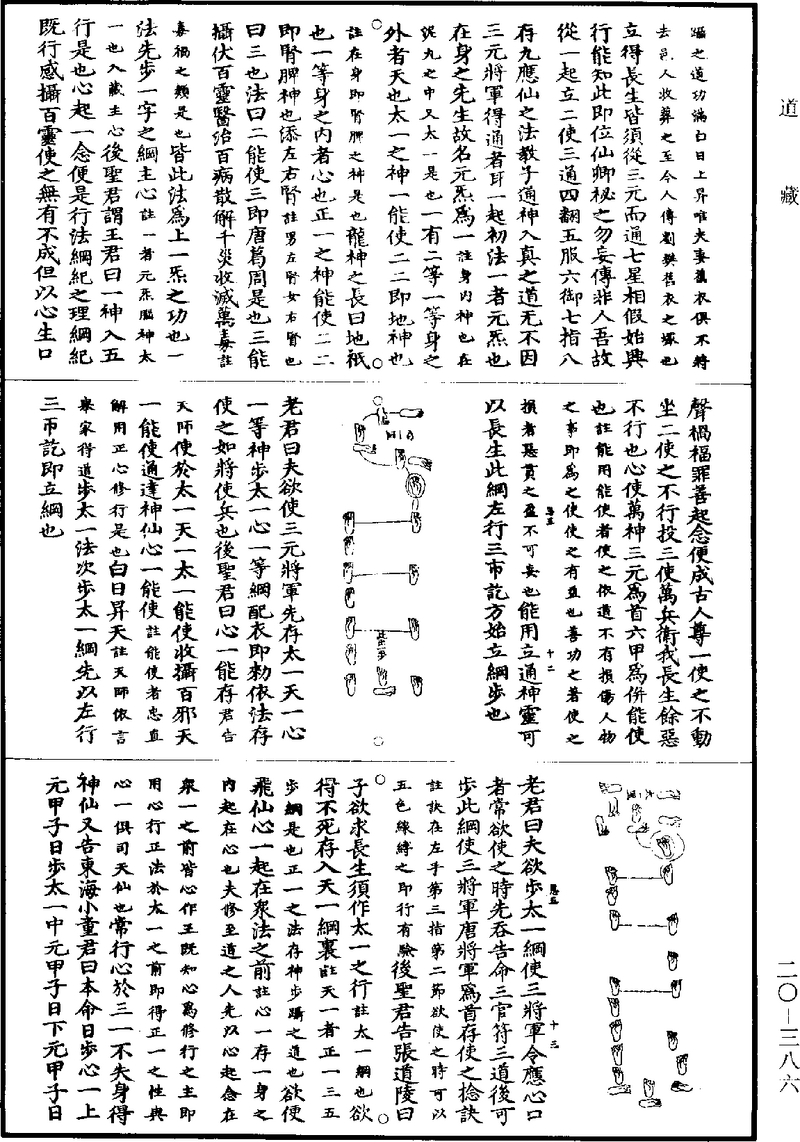 道藏
二〇—三八六
躡之道功滿白日上昇唯夫妻舊衣俱不將
去邑人收葬之至今人傳劉樊舊衣之塚也
立得長生皆須從三元而通七星相假始與
行能知此即位仙卿秘之勿妄傳非人吾故
從一起立二使三通四翻五服六御七指八
存九應仙之法教子通神入真之道无不因
三元將軍得通者耳一起初法一者元炁也
在身之先生故名元炁為一註身內神也在
泥丸之中又太一是也一有二等一等身之
外者天也太一之神一能使二二即地神也
註在身即腎脾之神是也龍神之長曰地祇
也一等身之內者心也正一之神能使二二
即腎脾神也添左右腎註男左腎女右腎也
曰三也法曰二能使三即唐葛周是也三能
攝伏百靈醫治百病散解千災收滅萬毒註
喜禍之類是也皆此法為上一炁之功也一
法先步一字之綱主心註一者元炁腦神太
一也入藏主心後聖君謂王君曰一神入五
行是也心起一念便是行法綱紀之理綱紀
既行感攝百靈使之無有不成但以心生口
聲禍福罪善起念便成古人尊一使之不動
坐二使之不行投三使萬兵衛我長生餘惡
不行也心使萬神三元為首六甲為併能使
也註能用能使者使之依道不有損傷人物
之事即為之使使之有益也善功之著使之
損者惡貫之盈不可妄也能用立通神靈可
以長生此綱左行三帀訖方始立綱步也
十二
老君曰夫欲使三元將軍先存太一天一心
一等神步太一心一等綱配衣即勑依法存
使之如將使兵也後聖君曰心一能存君告
天師使於太一天一太一能使收攝百邪天
一能使通達神仙心一能使註能使者忠直
解用正心修行是也白日昇天註天師依言
舉家得道步太一法次步太一綱先以左行
三帀訖即立綱也
十三
老君曰夫欲步太一綱使三將軍令應心口
者常欲使之時先吞告命三官符三道後可
步此綱使三將軍唐將軍為首存使之捻訣
註訣在左手第三指第二節欲使之時可以
五色線縛之即行有驗後聖君告張道陵曰
子欲求長生須作太一之行註太一綱也欲
得不死存入天一綱裏註天一者正一三五
步綱是也正一之法存神步躡之道也欲便
飛仙心一起在衆法之前註心一存一身之
內起在心也夫修至道之人先以心起念在
衆一之前皆心作王既知心為修行之主即
用心行正法於太一之前即得正一之性與
心一俱司天仙也常行心於三一不失身得
神仙又告東海小童君曰本命日步心一上
元甲子日步太一中元甲子日下元甲子日